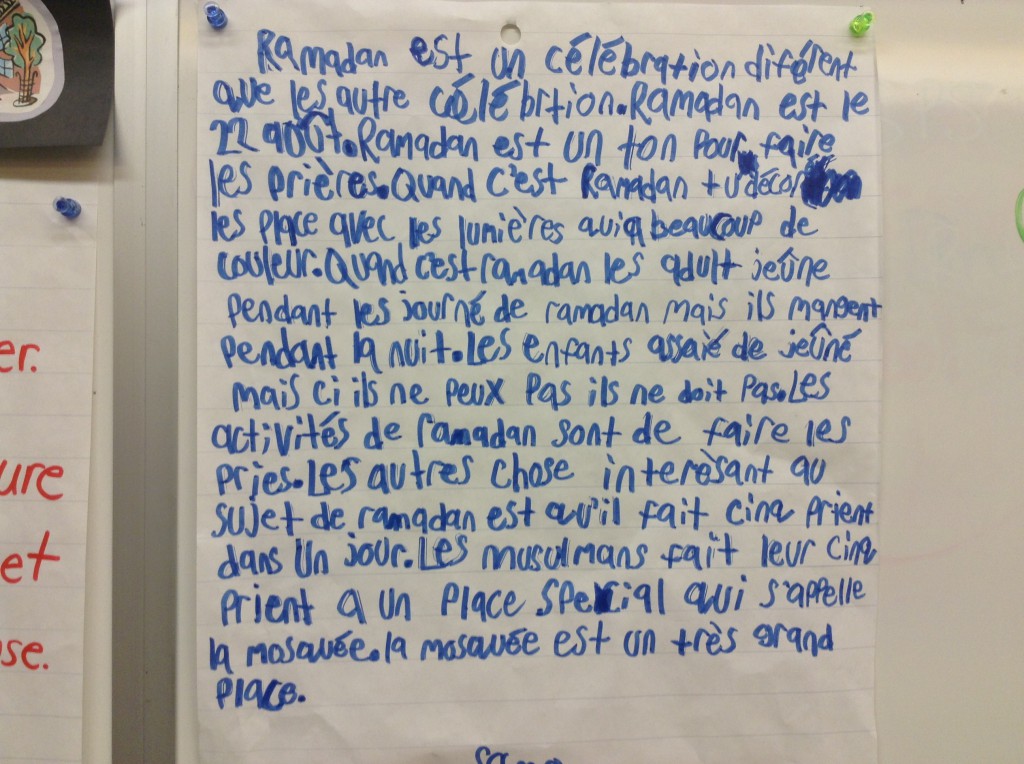 Ramadan est un célébration diférent
que les autre célébrition. Ramadan est le
22 août. Ramadan est un ton pour faire
les prières. Quand c'est Ramadan tu décor
les place avec les lumières qui a beaucoup de
couleur. Quand c'est ramadan les adult jeûne
pendant les journé de ramadan mais ils mangent
pendant la nuit. Les enfants assaié de jeûné
mais ci ils ne peux pas ils ne doit pas. Les
activités de ramadan sont de faire les
pries. Les autres chose interèsant au
sujet de ramadan est qu'il fait cinq prient
dans un jour. Les musulmans fait leur cinq
prient a un place spécial qui s'appelle
la mosquée. la mosquée est un très grand
place.
er.
ure
et
se.